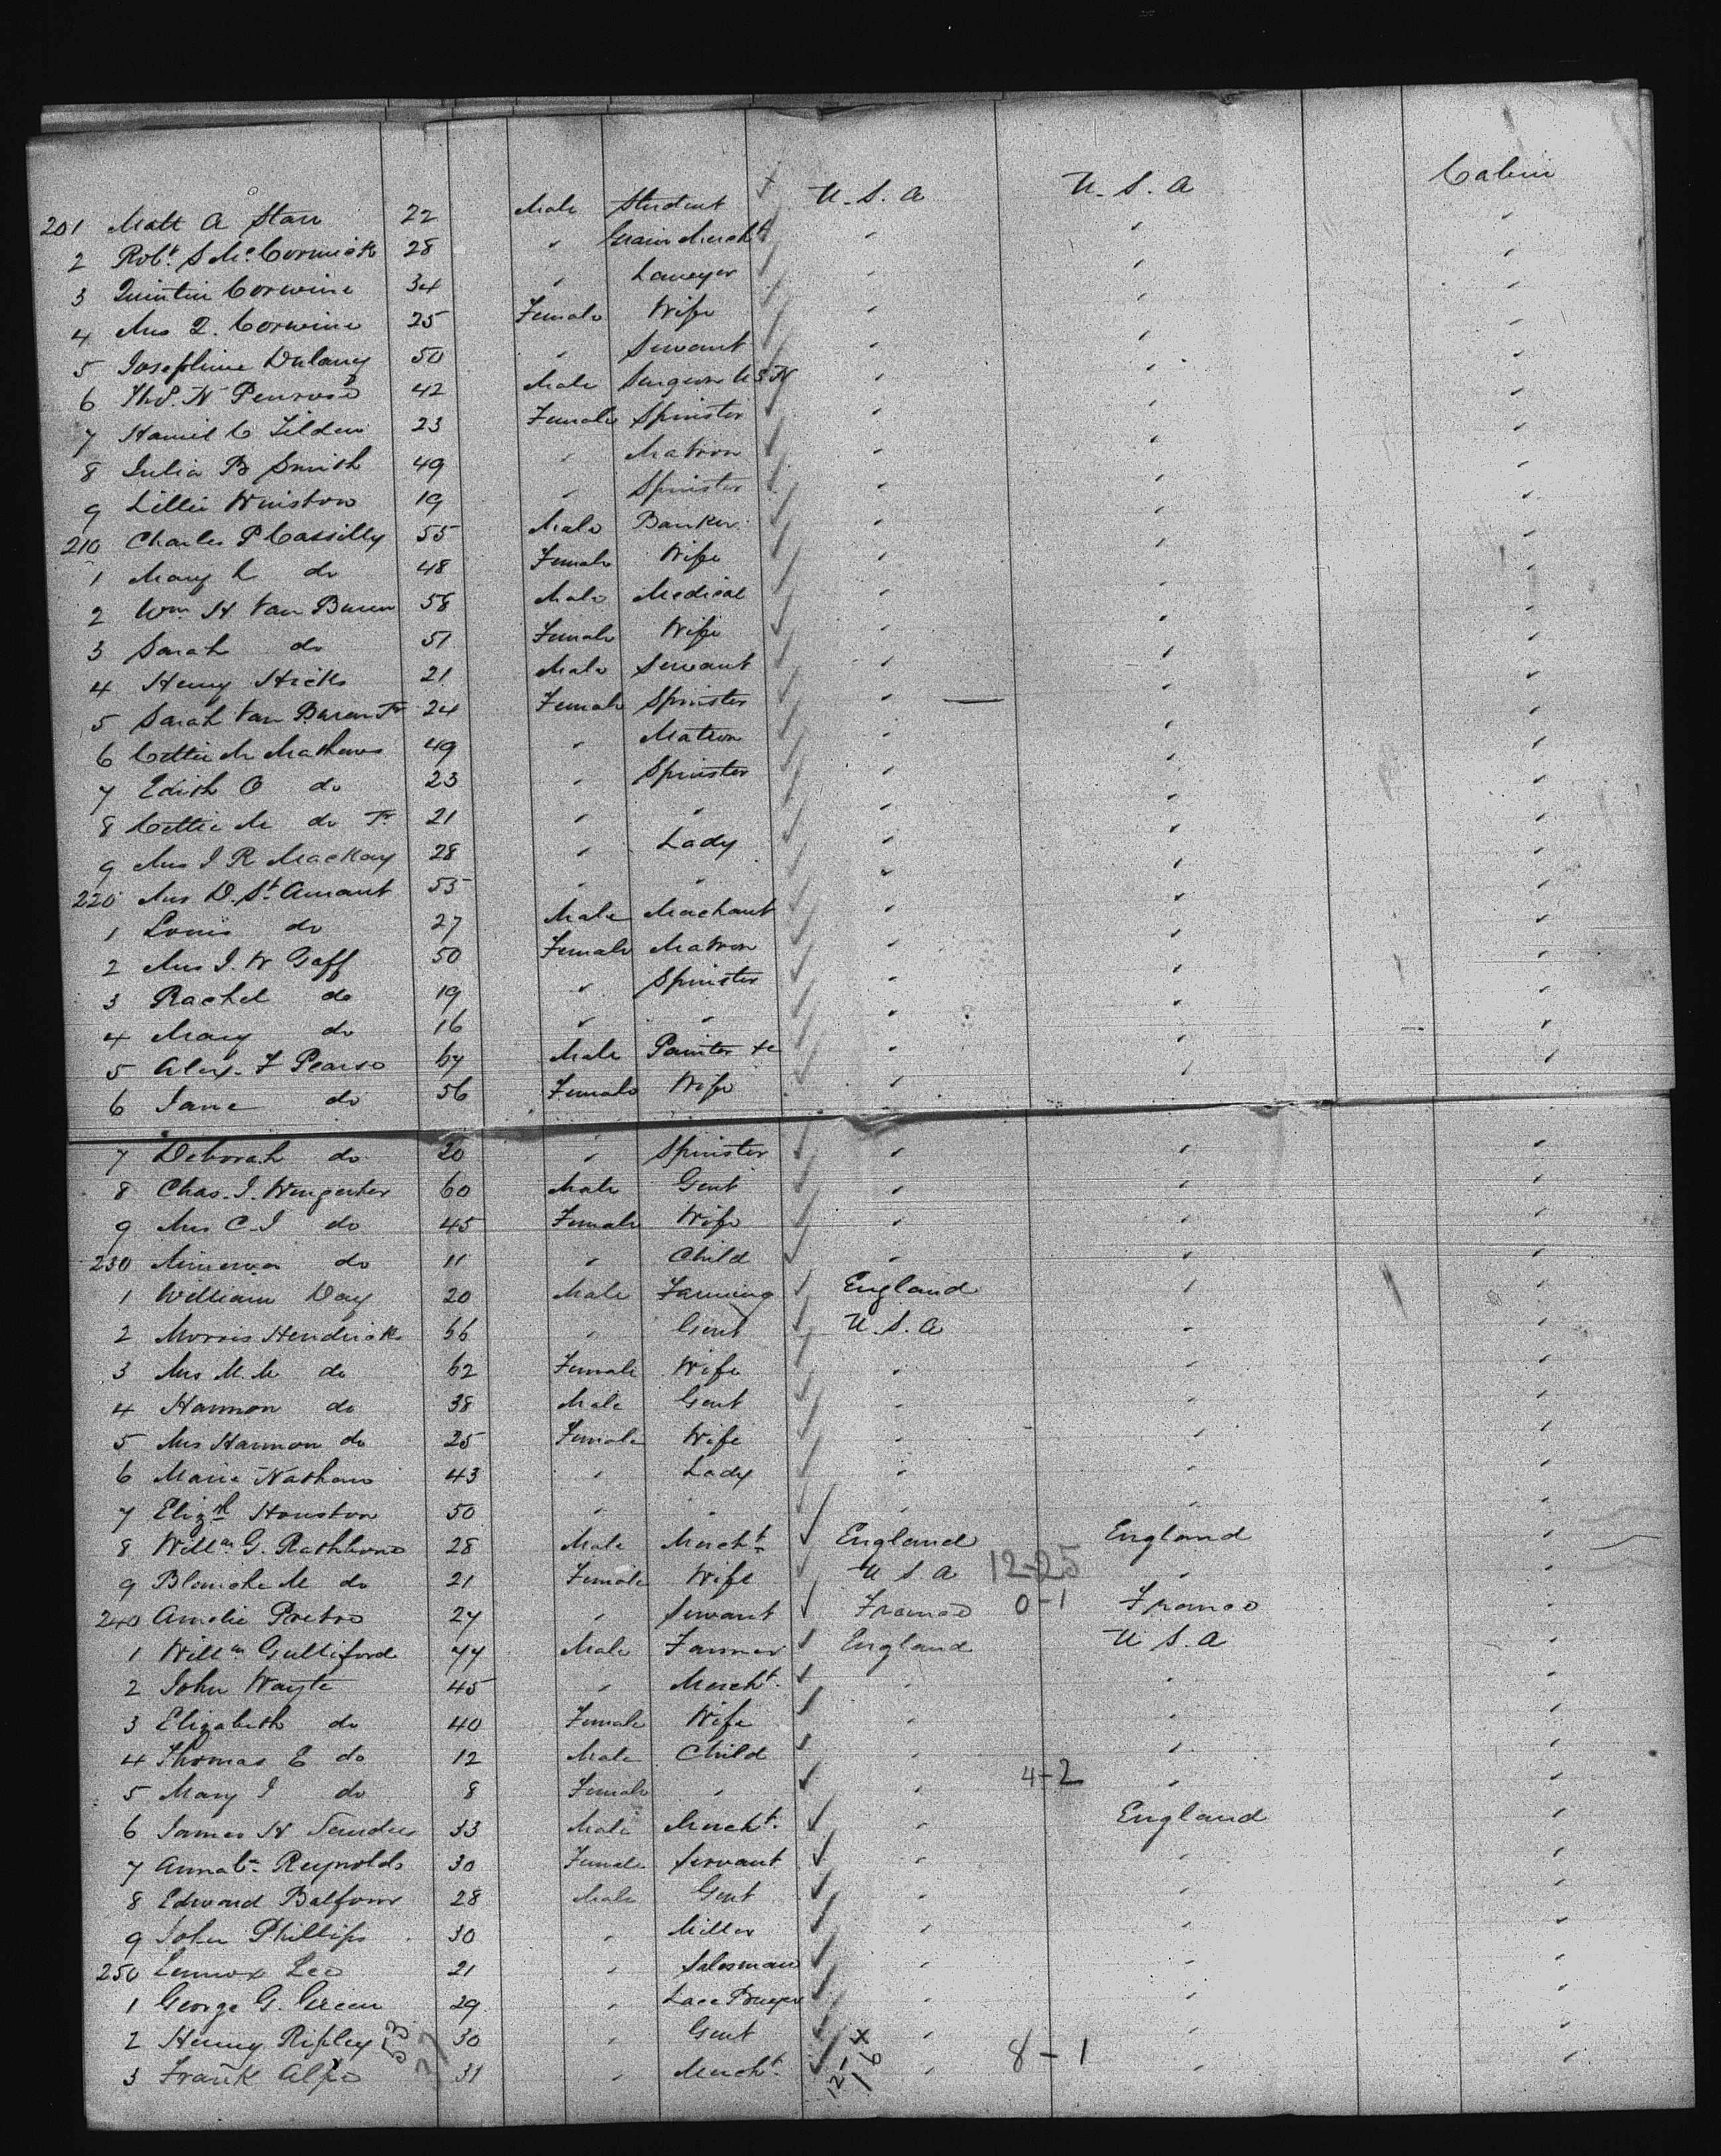 201 Matt A Starr 22 Male Student U.S.A U.S.A Cabin
2 Robt. S McCormick 28 " Grain Mercht " " "
3 Quintin Corwine 34 " Lawyer " " "
4 Mrs Q. Corwine 25 Female Wife " " "
5 Josephine Dulany 50 " Servant " " "
6 Ths. N Penrose 42 Male Surgeon USN " " "
7 Harriet C Tilden 23 Female Spinster " " "
8 Julia B Smith 49 " Matron " " "
9 Lillie Winston 19 " Spinster " " "
210 Charles P Cassilly 55 Male Banker " " "
1 Mary L do 48 Female Wife " " "
2 Wm. H Van Buren 58 Male Medical " " "
3 Sarah do 51 Female Wife " " "
4 Henry Hicks 21 Male Servant " " "
5 Sarah Van Buren Jr 24 Female Spinster " " "
6 Cettie M Mathews 49 " Matron " " "
7 Edith O do 23 " Spinster " " "
8 Cettie M do Jr 21 " " " " "
9 Mrs J R Mackay 28 " Lady " " "
220 Mrs D. St. Amant 55 " " " " "
1 Louis do 27 Male Merchant " " "
2 Mrs J. W Gaff 50 Female Matron " " "
3 Rachel do 19 " Spinster " " "
4 Mary do 16 " " " " "
5 Alex. F Pearso 67 Male Painter &c " " "
6 Jane do 56 Female Wife " " "
7 Deborah do 20 " Spinster " " "
8 Chas. J. 60 Male Gent " " "
9 Mrs C. J do 45 Female Wife " " "
230 Minerva do 11 " Child " " "
1 William Day 20 Male Farming England " "
2 Morris Hendricks 66 " Gent U.S.A " "
3 Mrs M. M do 62 Female Wife " " "
4 Harmon do 38 Male Gent " " "
5 Mrs Harmon do 25 Female Wife " " "
6 Marie Nathans 43 " Lady " " "
7 Elizth Houston 50 " " " " "
8 Willm G. Rathbone 28 Male Mercht England England "
9 Blanche M do 21 Female Wife U S A 12-25 " "
240 Amelie 27 " Servant France 0-1 France "
1 Willm Gulliford 44 Male Farmer England U S. A "
2 John Wayte 45 " Mercht. " " "
3 Elizabeth do 40 Female Wife " " "
4 Thomas E do 12 Male Child " " "
5 Mary J do 8 Female " " 4-2 " "
6 James H 33 Male Mercht. " England "
7 Annab. Reynolds 30 Female Servant " " "
8 Edward Balfour 28 Male Gent " " "
9 John Phillips 30 " Miller " " "
250 Lennox Leo 21 " Salesman " " "
1 George G. Green 29 " Lace Buyer " " "
2 Henry Ripley 53 30 " Gent " " "
3 Frank 27 31 " Mercht. 12- 16 " 8-1 " "